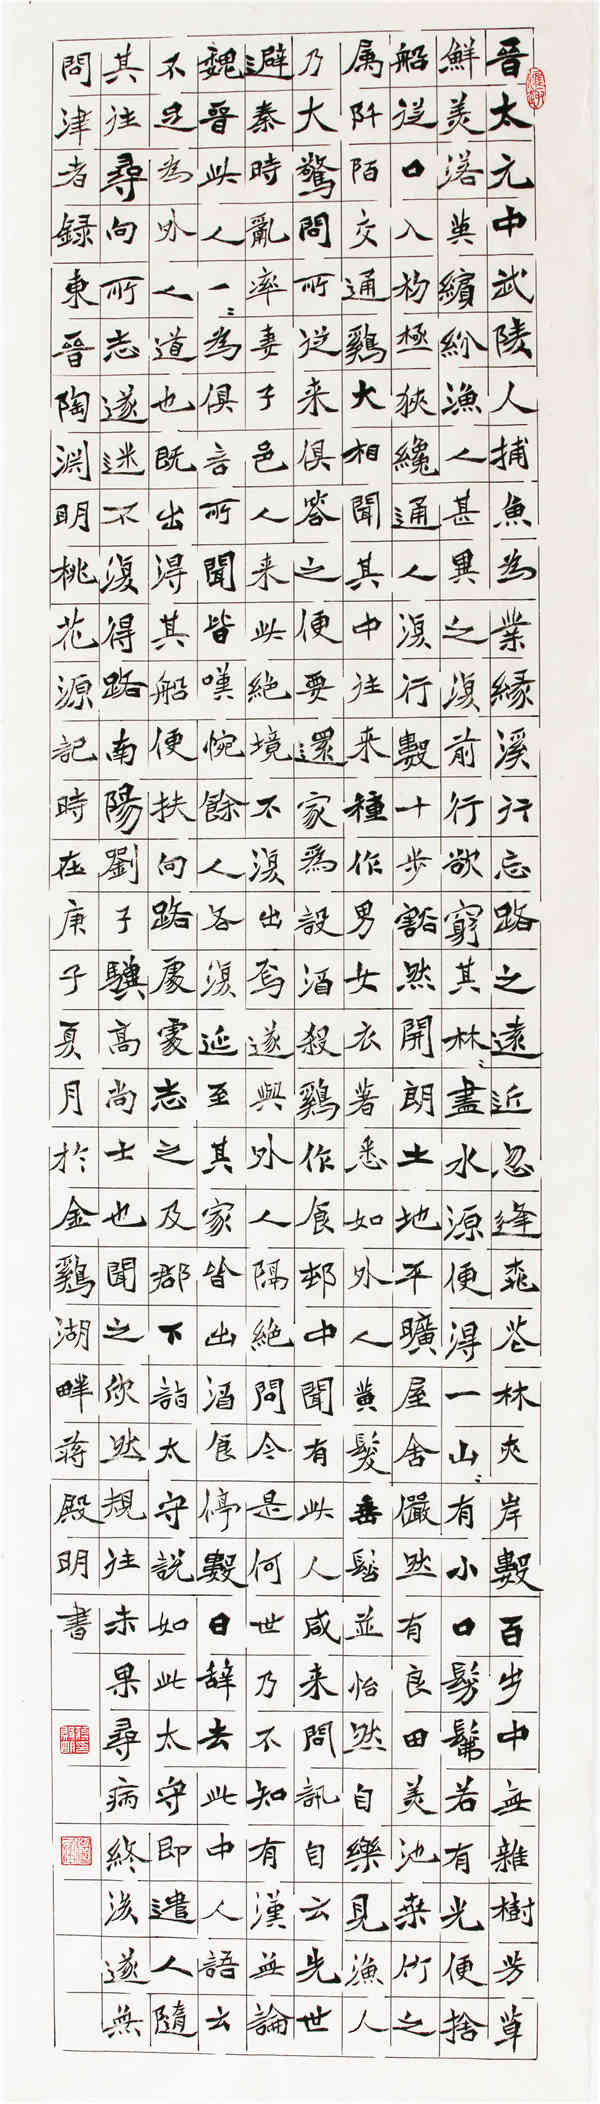 晉太元中武陵人捕魚為業緣溪行忘路之遠近忽逢桃花林夾岸數百步中無雜樹芳草
鮮美落英繽紛漁人甚異之復前行欲窮其林〻盡水源便得一山〻有小口髣髴若有光便捨
船從口入初極狹纔通人復行數十步豁然開朗土地平曠屋舍儼然有良田美池桑竹之
属阡陌交通鷄犬相聞其中往來種作男女衣著悉如外人黃髮垂髫並怡然自樂見漁人
乃大驚問所從来俱答之便要還家為設酒殺鷄作食邨中聞有此人咸来問訊自云先世
避秦時亂率妻子邑人来此絶境不復出焉遂與外人隔絶問今是何世乃不知有漢無論
魏晉此人一〻為俱言所聞皆嘆惋餘人各復延至其家皆出酒食停數日辞去此中人語云
不足為外人道也既出得其船便扶向路處處志之及郡下詣太守說如此太守即遣人隨
其往尋向所志遂迷不復得路南陽劉子驥高尚士也聞之欣然規往未果尋病終後遂無
問津者録東晉陶淵明桃花源記時在庚子夏月於金鷄湖畔蒋殿明書